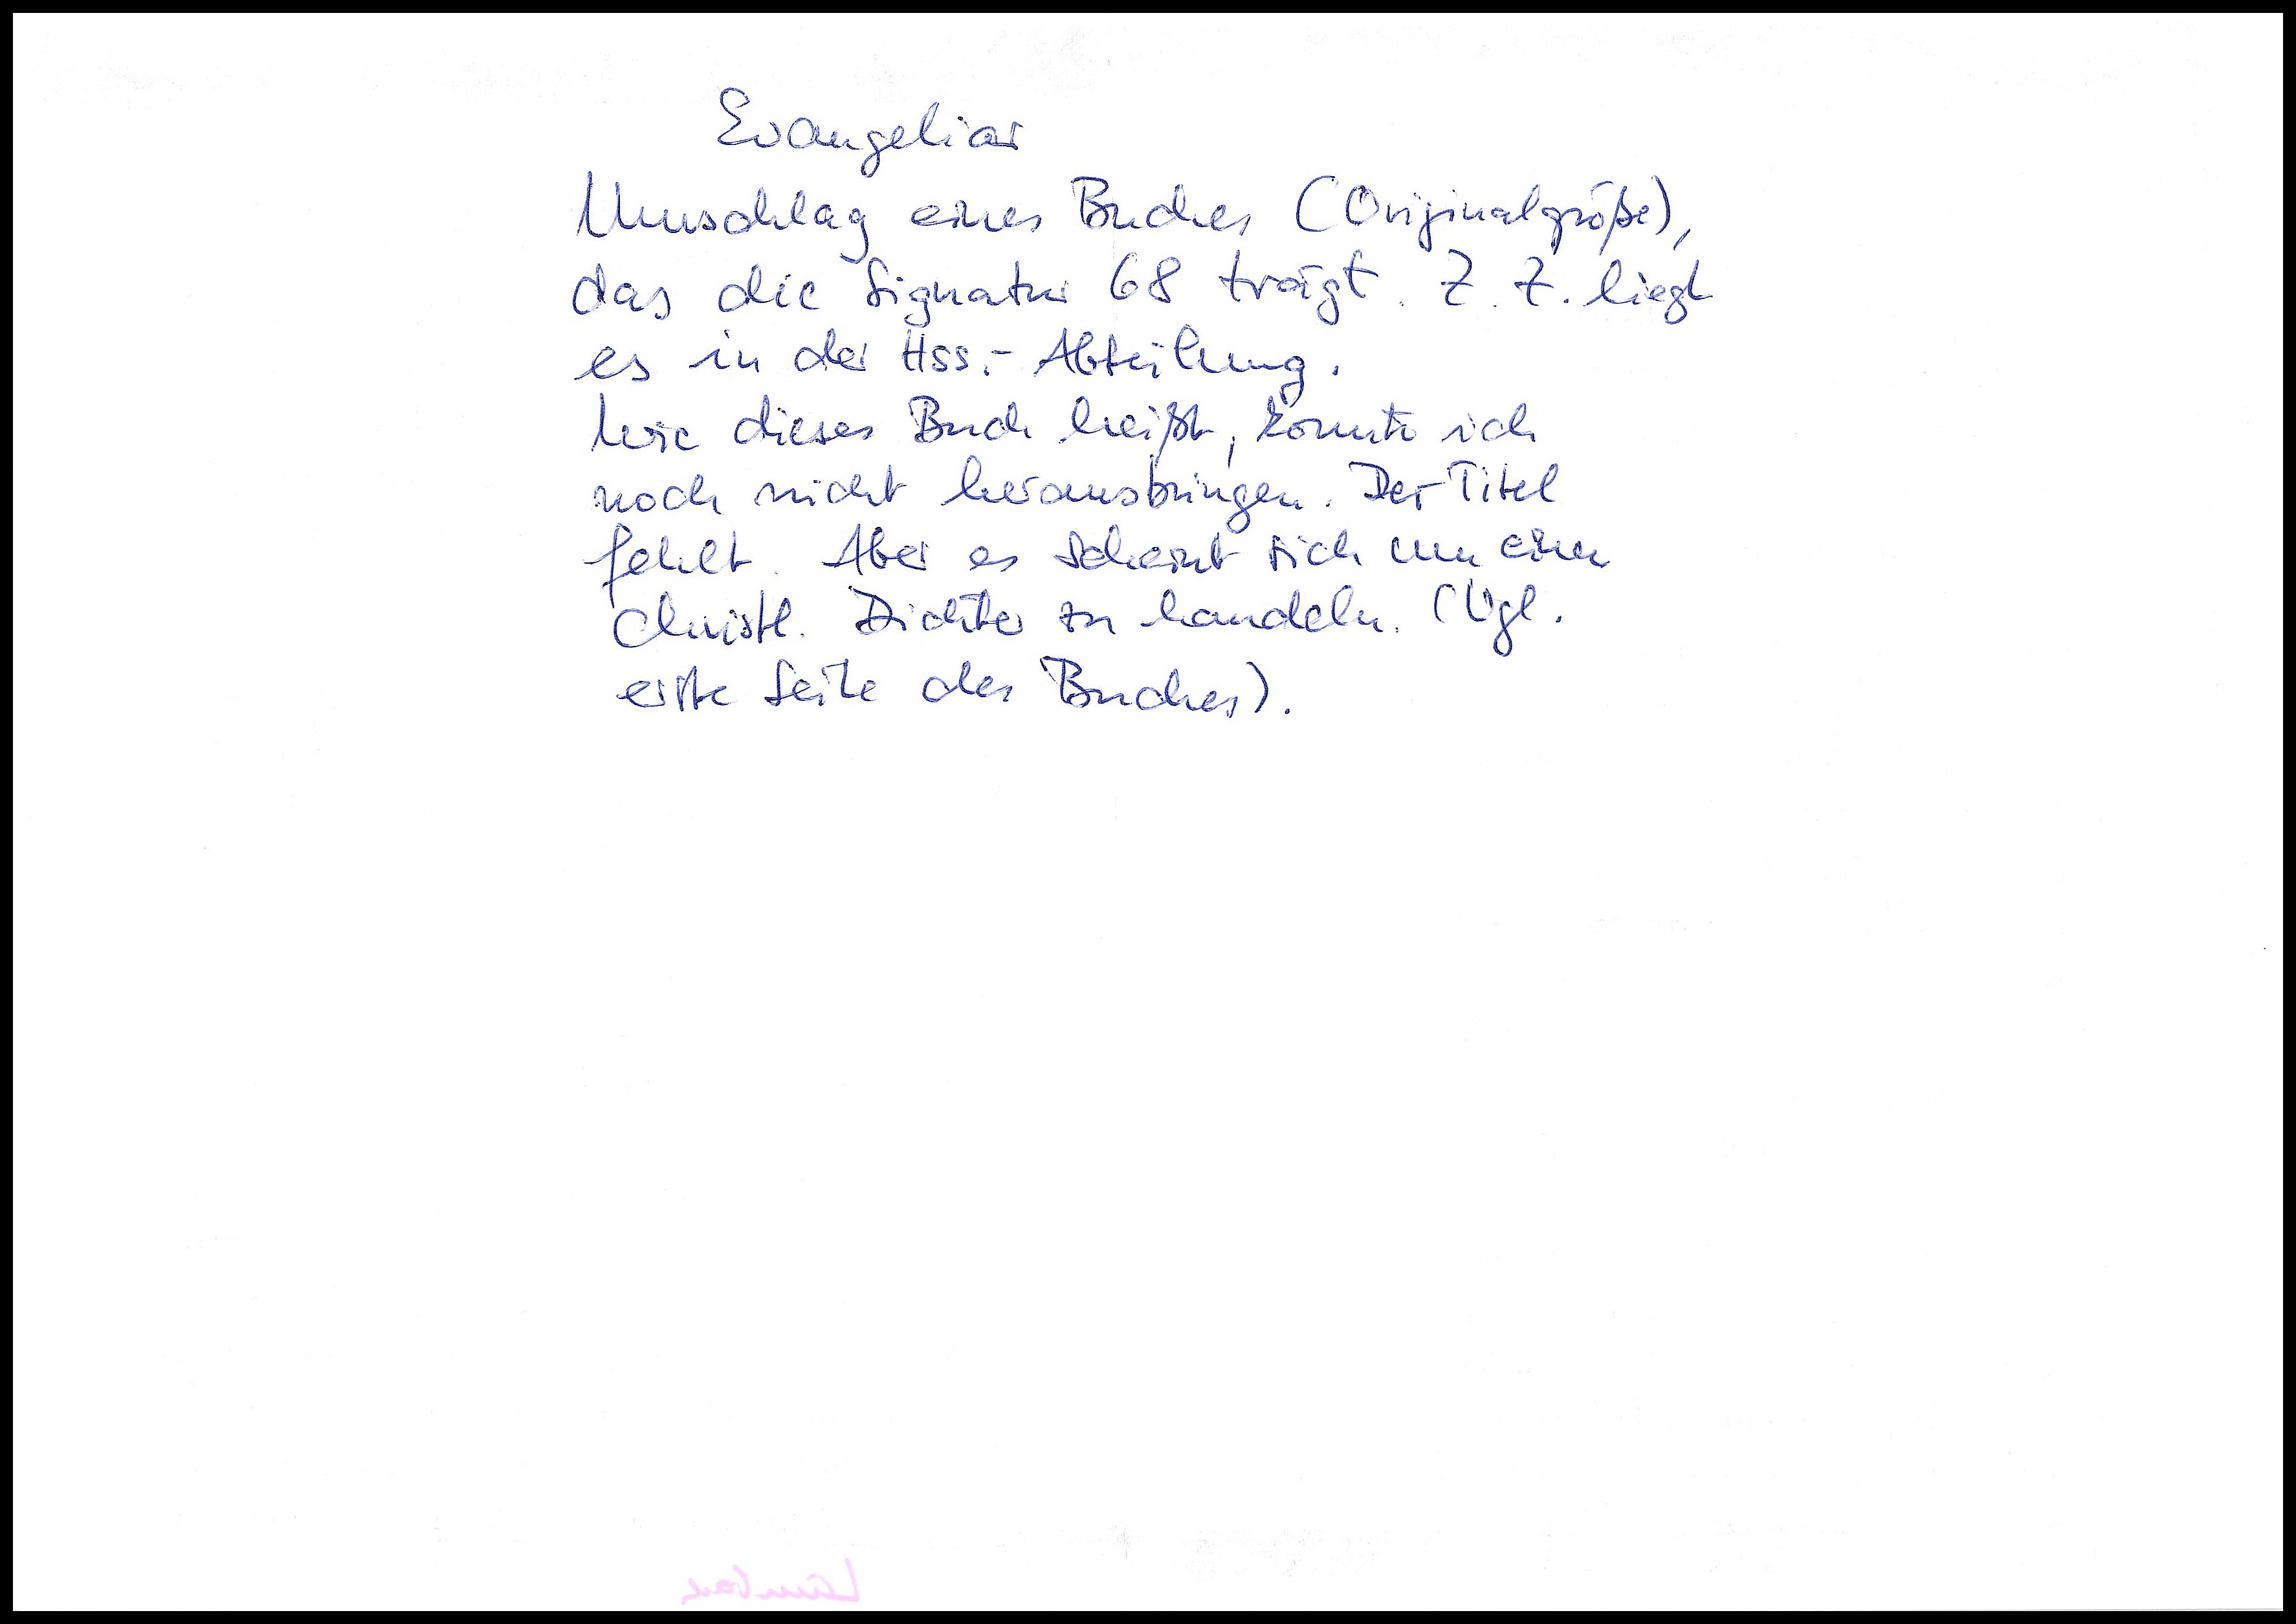 Evangeliar
Umschlag eines Buches (Originalgröße),
das die Signatur 68 trägt. Z. Z. liegt
es in der Hss.-Abteilung.
Wie dieses Buch heißt, konnte ich
noch nicht herausbringen. Der Titel
fehlt. Aber es scheint sich um einen
christl. Dichter zu handeln. (Vgl.
erste Seite des Buches).